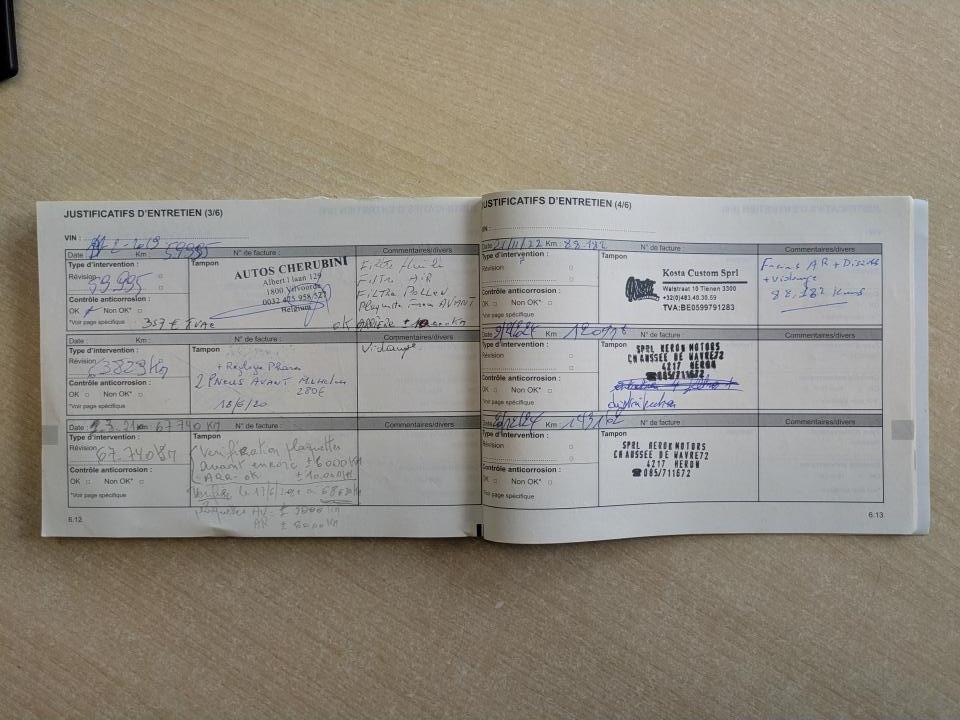 JUSTIFICATIFS D'ENTRETIEN (3/6)
VIN :
Date 2019 Km : 59995 N° de facture : Commentaires/divers
Type d'intervention : Tampon
Révision 59.995
AUTOS CHERUBINI
Albert I laan 129
1800 Vilvoorde
0032 475 958 527
Belgium
Filtre huile
Filtre AIR
FILTRE POLLEN
Plaquette frein AVANT
Contrôle anticorrosion :
OK Non OK* :
*Voir page spécifique
357 € TVAC
OK ARRIERE ± Km
Date : Km : N° de facture : Commentaires/divers
Type d'intervention : Tampon
Vidange
Révision 63823 Km
+ Réglage Phares
2 PNEUS AVANT
280€
18/6/20
Contrôle anticorrosion :
OK Non OK* :
*Voir page spécifique
Date : 3.21 Km 67740 KM N° de facture : Commentaires/divers
Type d'intervention : Tampon
Révision 67.740 Km
Vérification plaquettes
avant encore ± 6000 Km
ARR. OK ± 10.000 Km
Contrôle anticorrosion :
OK Non OK* :
*Voir page spécifique
plaquettes AV
AR ± 8000 Km
6.12
JUSTIFICATIFS D'ENTRETIEN (4/6)
VIN :
Date 21/11/22 Km : 88.182 N° de facture : Commentaires/divers
Type d'intervention : Tampon
Révision
Kosta Custom Sprl
Walstraat 10 Tienen 3300
+32(0)483.40.30.59
TVA:BE0599791283
Freins AR + Disques
+ vidange
88,182 Kms
Contrôle anticorrosion :
OK Non OK* :
*Voir page spécifique
Date Km : N° de facture : Commentaires/divers
Type d'intervention : Tampon
Révision
SPRL HERON MOTORS
CHAUSSEE DE WAVRE72
4217 HERON
☎085/711672
distribution
Contrôle anticorrosion :
OK Non OK* :
*Voir page spécifique
Date Km : N° de facture : Commentaires/divers
Type d'intervention : Tampon
Révision
SPRL HERON MOTORS
CHAUSSEE DE WAVRE72
4217 HERON
☎085/711672
Contrôle anticorrosion :
OK Non OK* :
*Voir page spécifique
6.13